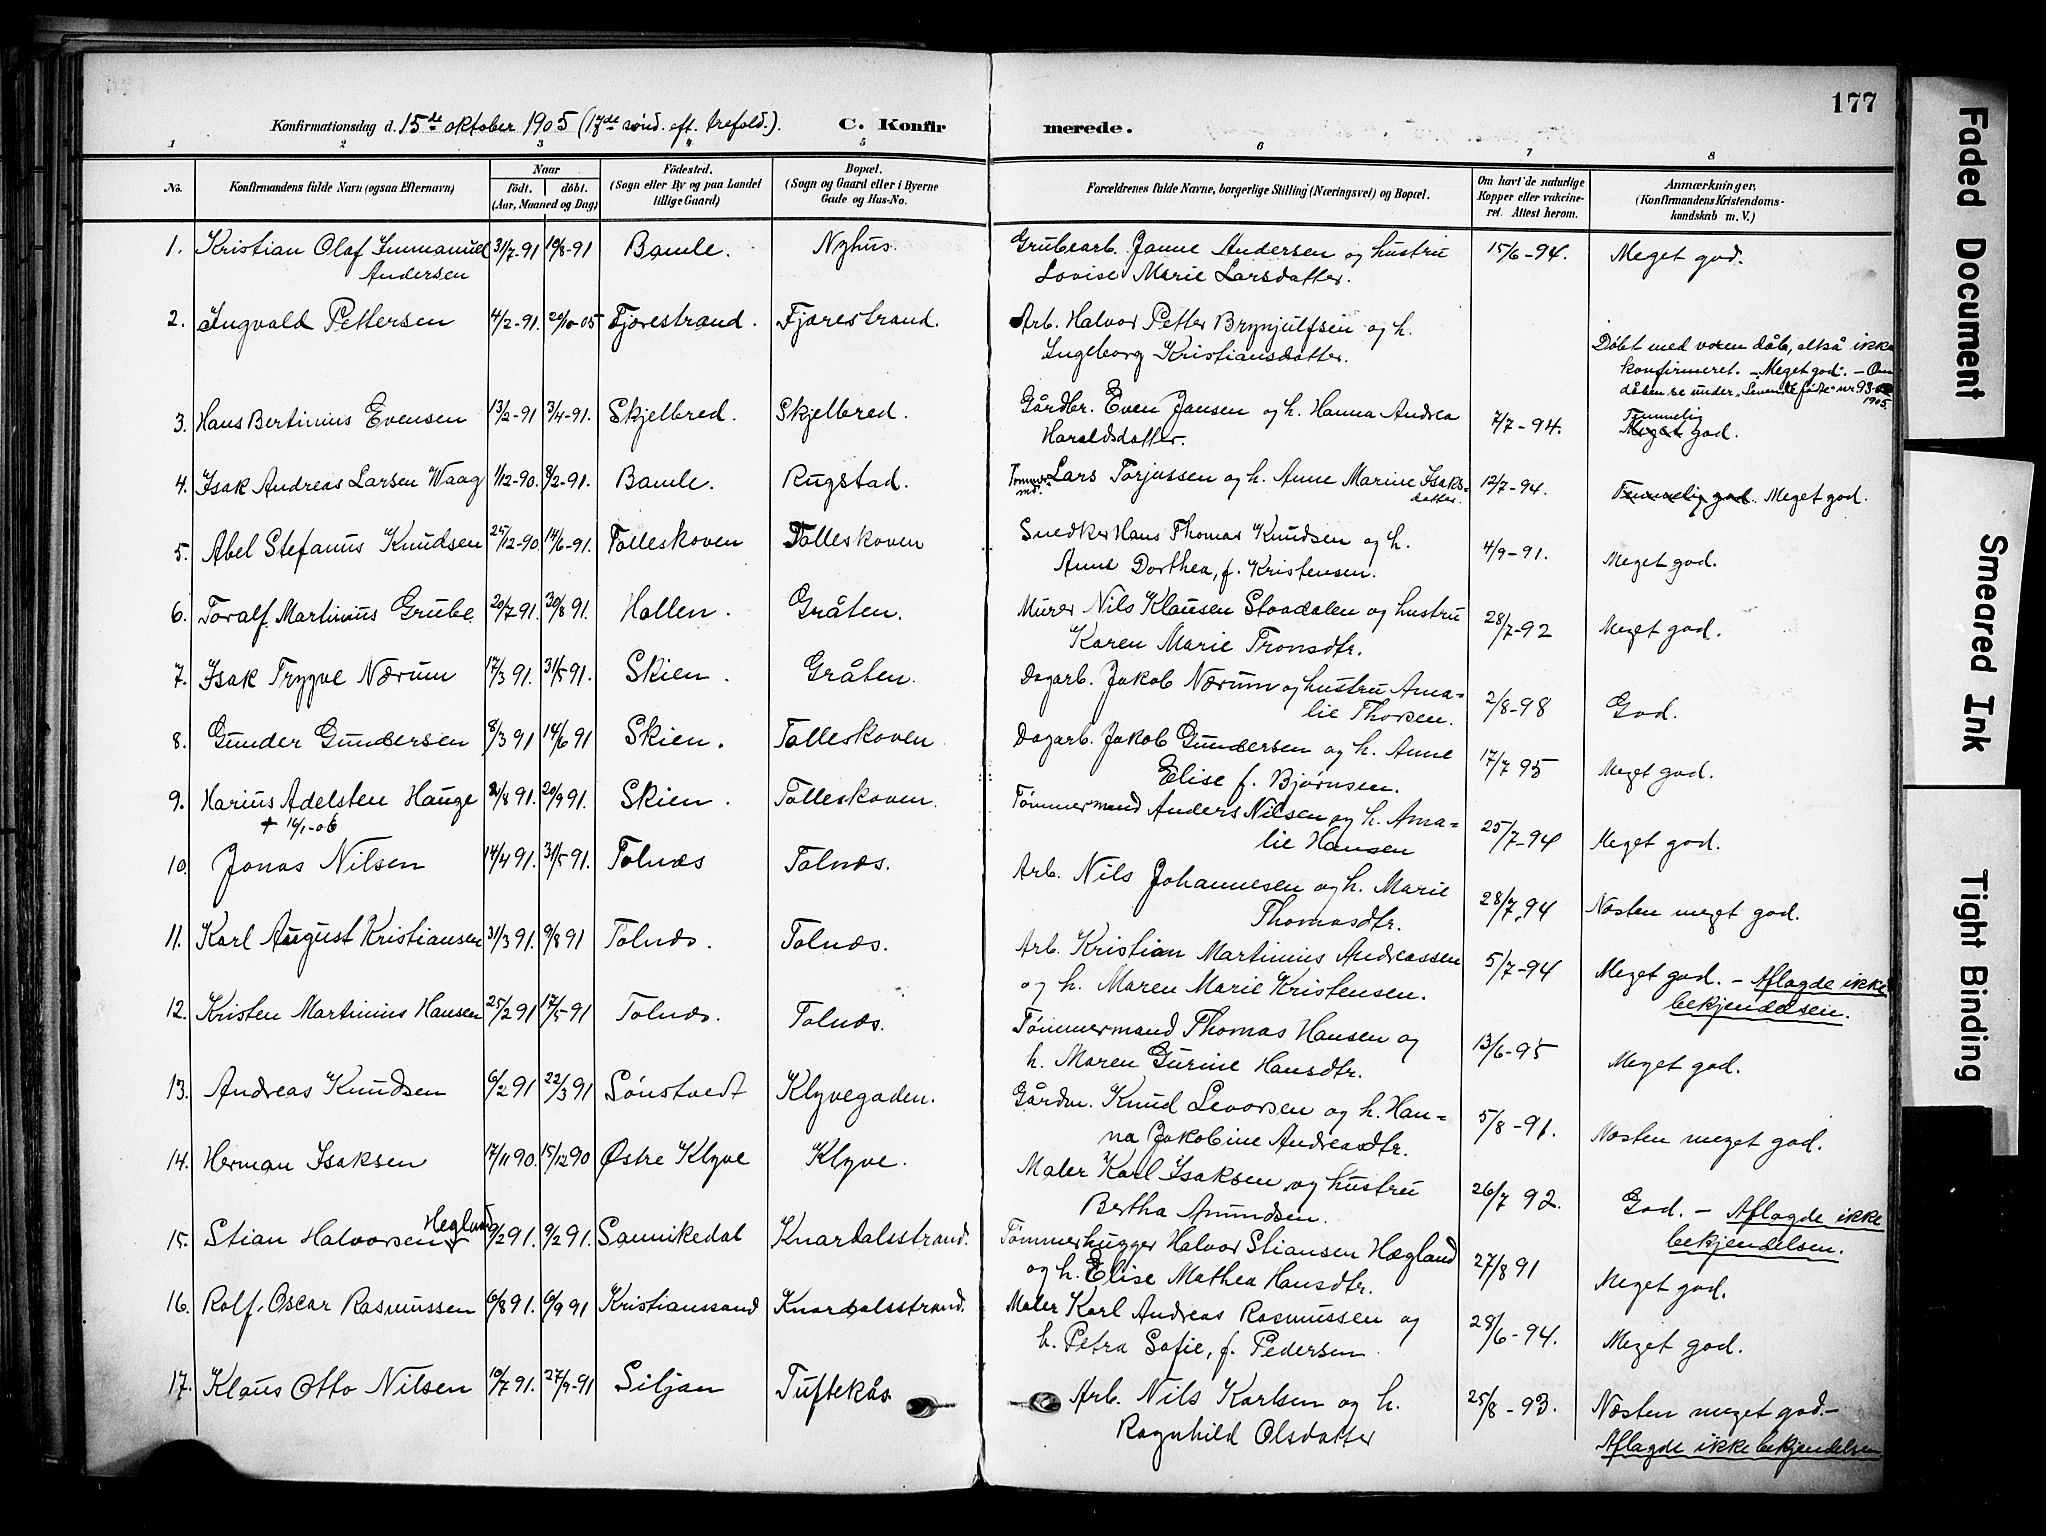 177
Konfirmationsdag d. 15de oktober 1905 (17de sønd. eft. trefold.). C. Konfirmerede.
1 2 3 4 5 6 7 8
No. Konfirmandens fulde Navn (ogsaa Efternavn) Naar født. døbt. (Aar, Maaned og Dag) Födested. (Sogn eller By og paa Landet tillige Gaard) Bopæl. (Sogn og Gaard eller i Byerne Gade og Hus-No. Forældrenes fulde Navne, borgerlige Stilling (Næringsvei) og Bopæl. Om havt de naturlige Kopper eller vakcineret. Attest herom. Anmærkninger. (Konfirmandens Kristendomskundskab m. V.)
1. Kristian Olaf Immanuel 31/7-91 16/8-91 Bamle. Nyhus. Grubearb. Janne Andersen og hustru 15/6-94. Meget god.
Andersen Lovise Marie Larsdatter.
2. Ingvald Pettersen 4/2-91. 29/10-05 Fjærestrand. Fjærestrand. Arb. Halvor Petter Brynjulfsen og h.
Ingeborg Kristiansdatter. Döbt med voxen dåb, altså ikke
konfirmeret. - Meget god. - Om
dåben se under "Levende fødte" nr 93
1905.
3. Hans Bertinius Evensen 13/2-91 3/4-91. Skjelbred. Skjelbred. Gårdbr. Even Jansen og h. Hanna Andrea 7/7-94. Temmelig
Haraldsdatter. Meget god.
4. Isak Andreas Larsen Waag 1/12-90. 8/2-91. Bamle. Rugstad. Tømmermd. Lars Torjussen og h. Anne Marine Isaksdatter. 12/7-94. Temmelig god. Meget god.
5. Abel Stefanus Knudsen 25/12-90 14/6-91. Folleskoven Folleskoven Snedker Hans Thomas Knudsen og h. 4/9-91. Meget god.
Anne Dorthea, f. Kristensen.
6. Toralf Martinius Grube 20/7 91. 30/8 91. Hollen. Gråten. Murer Nils Klausen Staadalen og hustru 28/7-92 Meget god.
Karen Marie Tronsdtr.
7. Isak Trygve Nærum 17/3 91. 31/5 91. Skien. Gråten. Dagarb. Jakob Nærum og hustru Ama- 2/8-98 God.
lie Thorsen.
8. Gunder Gundersen 8/3 91 14/6 91 Skien. Folleskoven Dagarb. Jakob Gundersen og h. Anne 17/7 95 Meget god.
Elise f. Bjørnsen.
9. Marius Adelsten Hauge 2/8 91. 20/9 91. Skien. Folleskoven. Tömmermand Anders Nilsen og h. Ama- 25/7-94 Meget god.
+ 16/1-06 lie Hansen
10. Jonas Nilsen 14/4 91. 31/5 91. Tolnæs Tolnæs. Arb. Nils Johannesen og h. Marie 28/7 94 Næsten meget god.
Thomasdtr.
11. Karl August Kristiansen 31/3 91. 9/8 91 Tolnæs. Tolnæs. Arb. Kristian Martinius Andreassen 5/7-94 Meget god. - Aflagde ikke
og h. Maren Marie Kristensen. bekjendelsen.
12. Kristen Martinius Hansen 25/2 91 17/5 91 Tolnæs. Tolnæs. Tømmermand Thomas Hansen og 13/6-95 Meget god.
h. Maren Gurine Hansdtr.
13. Andreas Knudsen 6/2 91 22/3 91 Sönstvedt Klyvegaden. Gårdm. Knud Levorsen og h. Han- 5/8-91. Næsten meget god.
na Jakobine Andreasdtr.
14. Herman Isaksen 17/11 90. 15/12 90 Østre Klyve Klyve. Maler Karl Isaksen og hustru 26/7 92. God. - Aflagde ikke
Bertha Amundsen. bekjendelsen.
15. Stian Halvorsen Hegland 9/2 91. Sannikedal Knardalsstrand. Tömmerhugger Halvor Stiansen Hægland 27/8 91 Meget god.
og h. Elise Mathea Hansdtr.
16. Rolf Oscar Rasmussen 6/8 91. 6/9 91 Kristianssand Knardalsstrand. Maler Karl Andreas Rasmussen og 28/6-94. Meget god.
h. Petra Sofie, f. Pedersen
17. Klaus Otto Nilsen 10/7 91. 27/9-91 Siljan Tuftekås Arb. Nils Karlsen og h. 25/8-93. Næsten meget god. -
Ragnhild Olsdatter Aflagde ikke bekjendelsen
Faded Document
Smeared Ink
Tight Binding